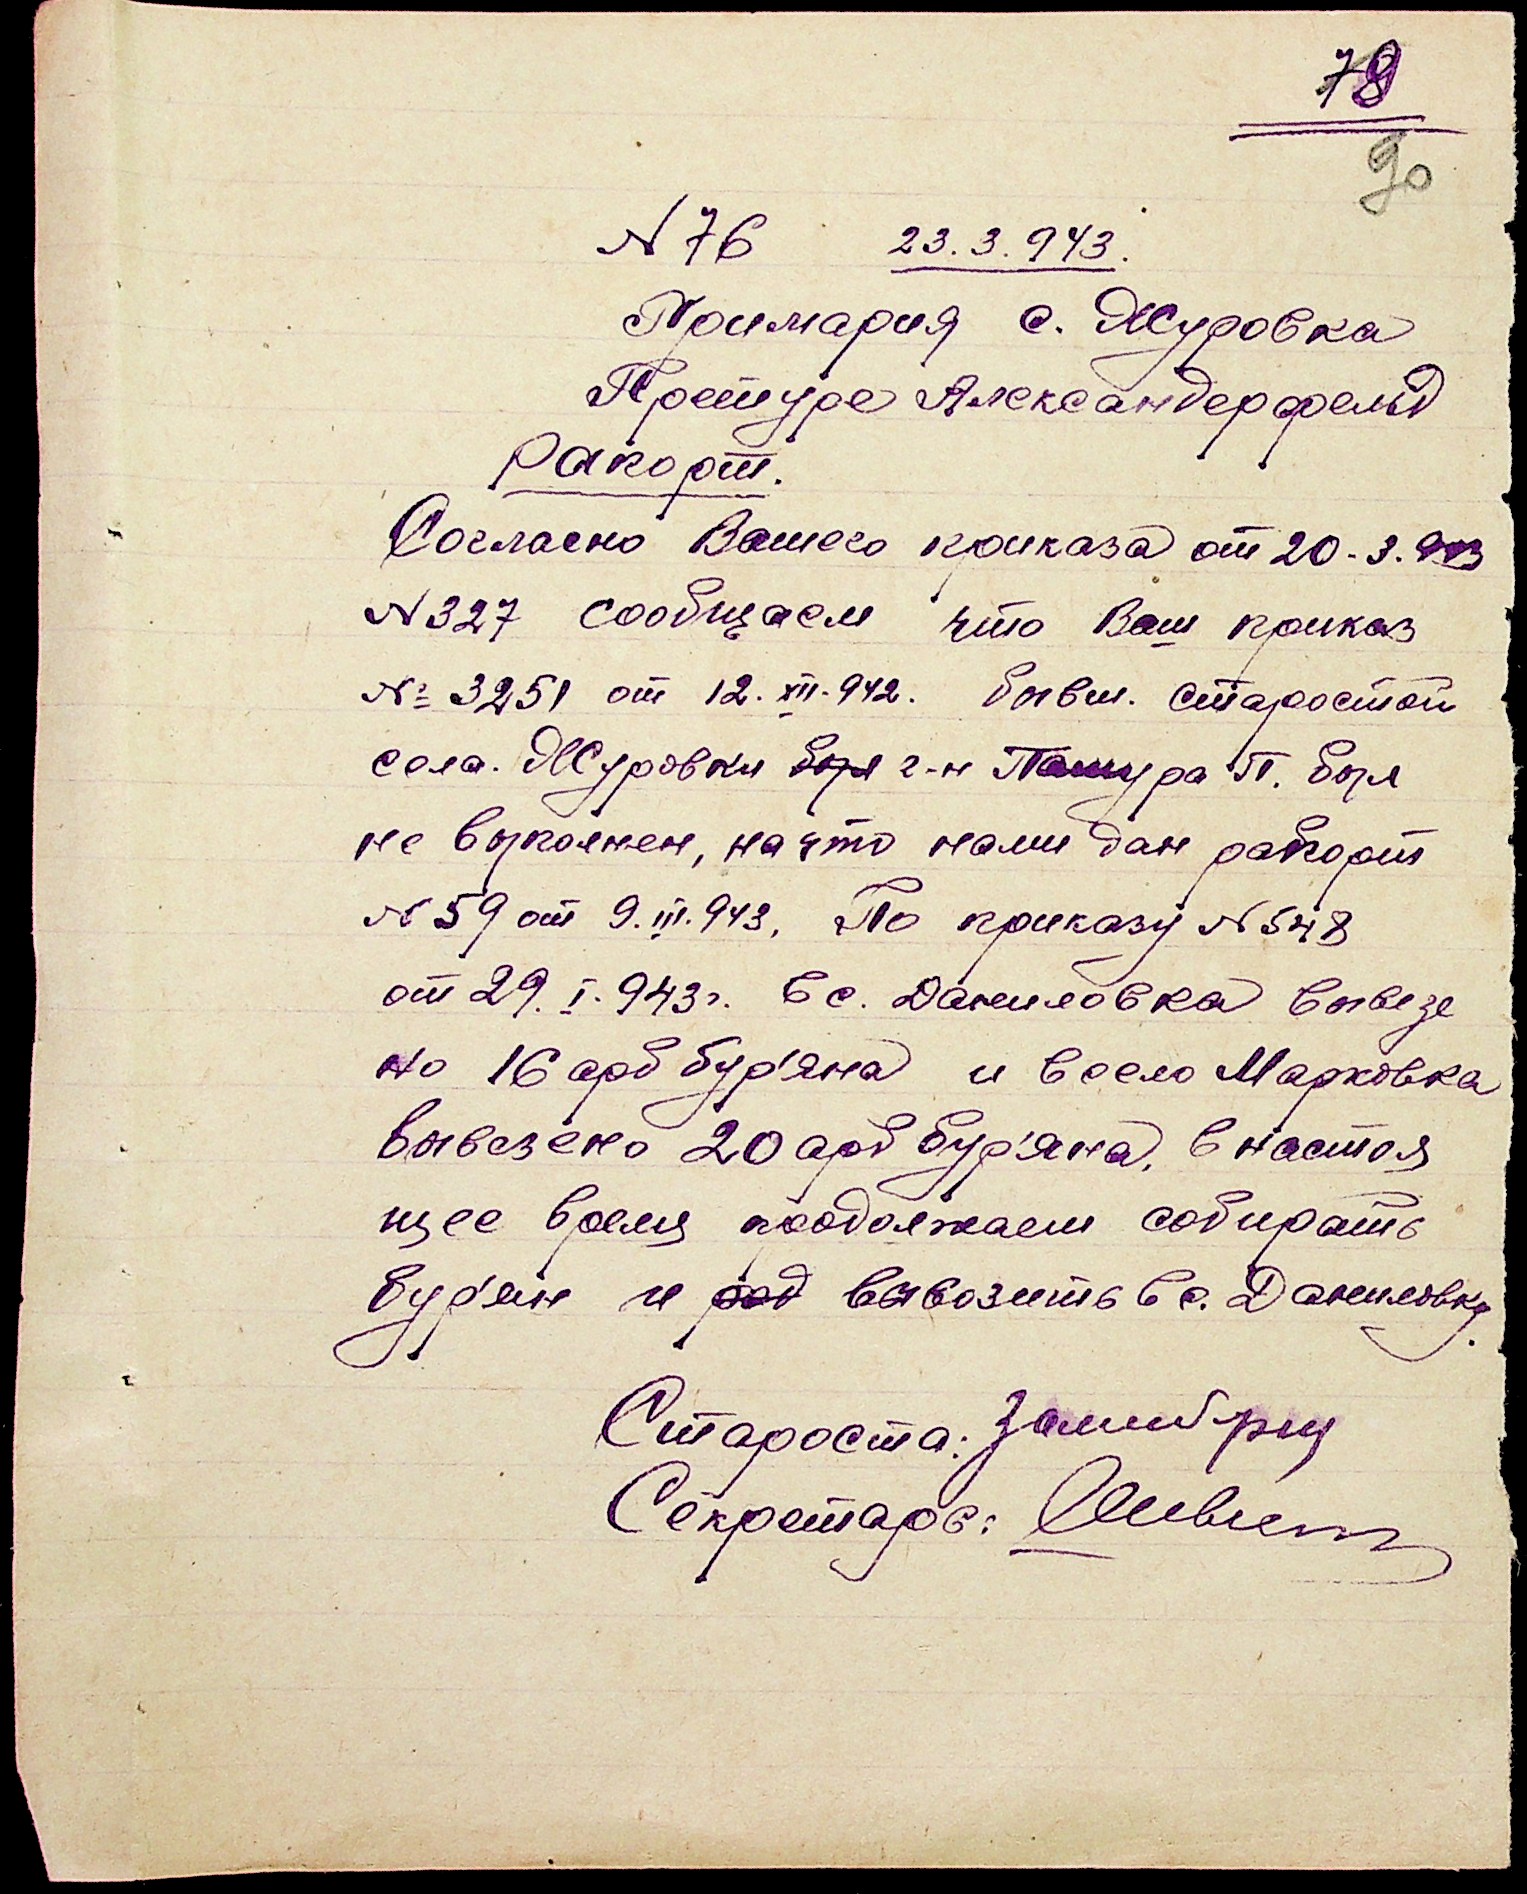 78
90
N 76 23.3.943.
Примария с. Журовка
Претуре Александерфельд
Рапорт.
Согласно Вашего приказа от 20-3.943
N 327 сообщаем что Ваш приказ
№ 3251 от 12.XII.942. бывш. старостой
села. Журовки был г-н Пашура П. был
не выполнен, на что нами дан рапорт
N 59 от 9.III.943. По приказу N 548
от 29.I.943г. в с. Даниловка вывезе
но 16 арб бур'яна и в село Марковка
вывезено 20 арб бур'яна, в настоя
щее время продолжаем собирать
бур'ян и вывозить в с. Даниловку.
Староста:
Секретарь: